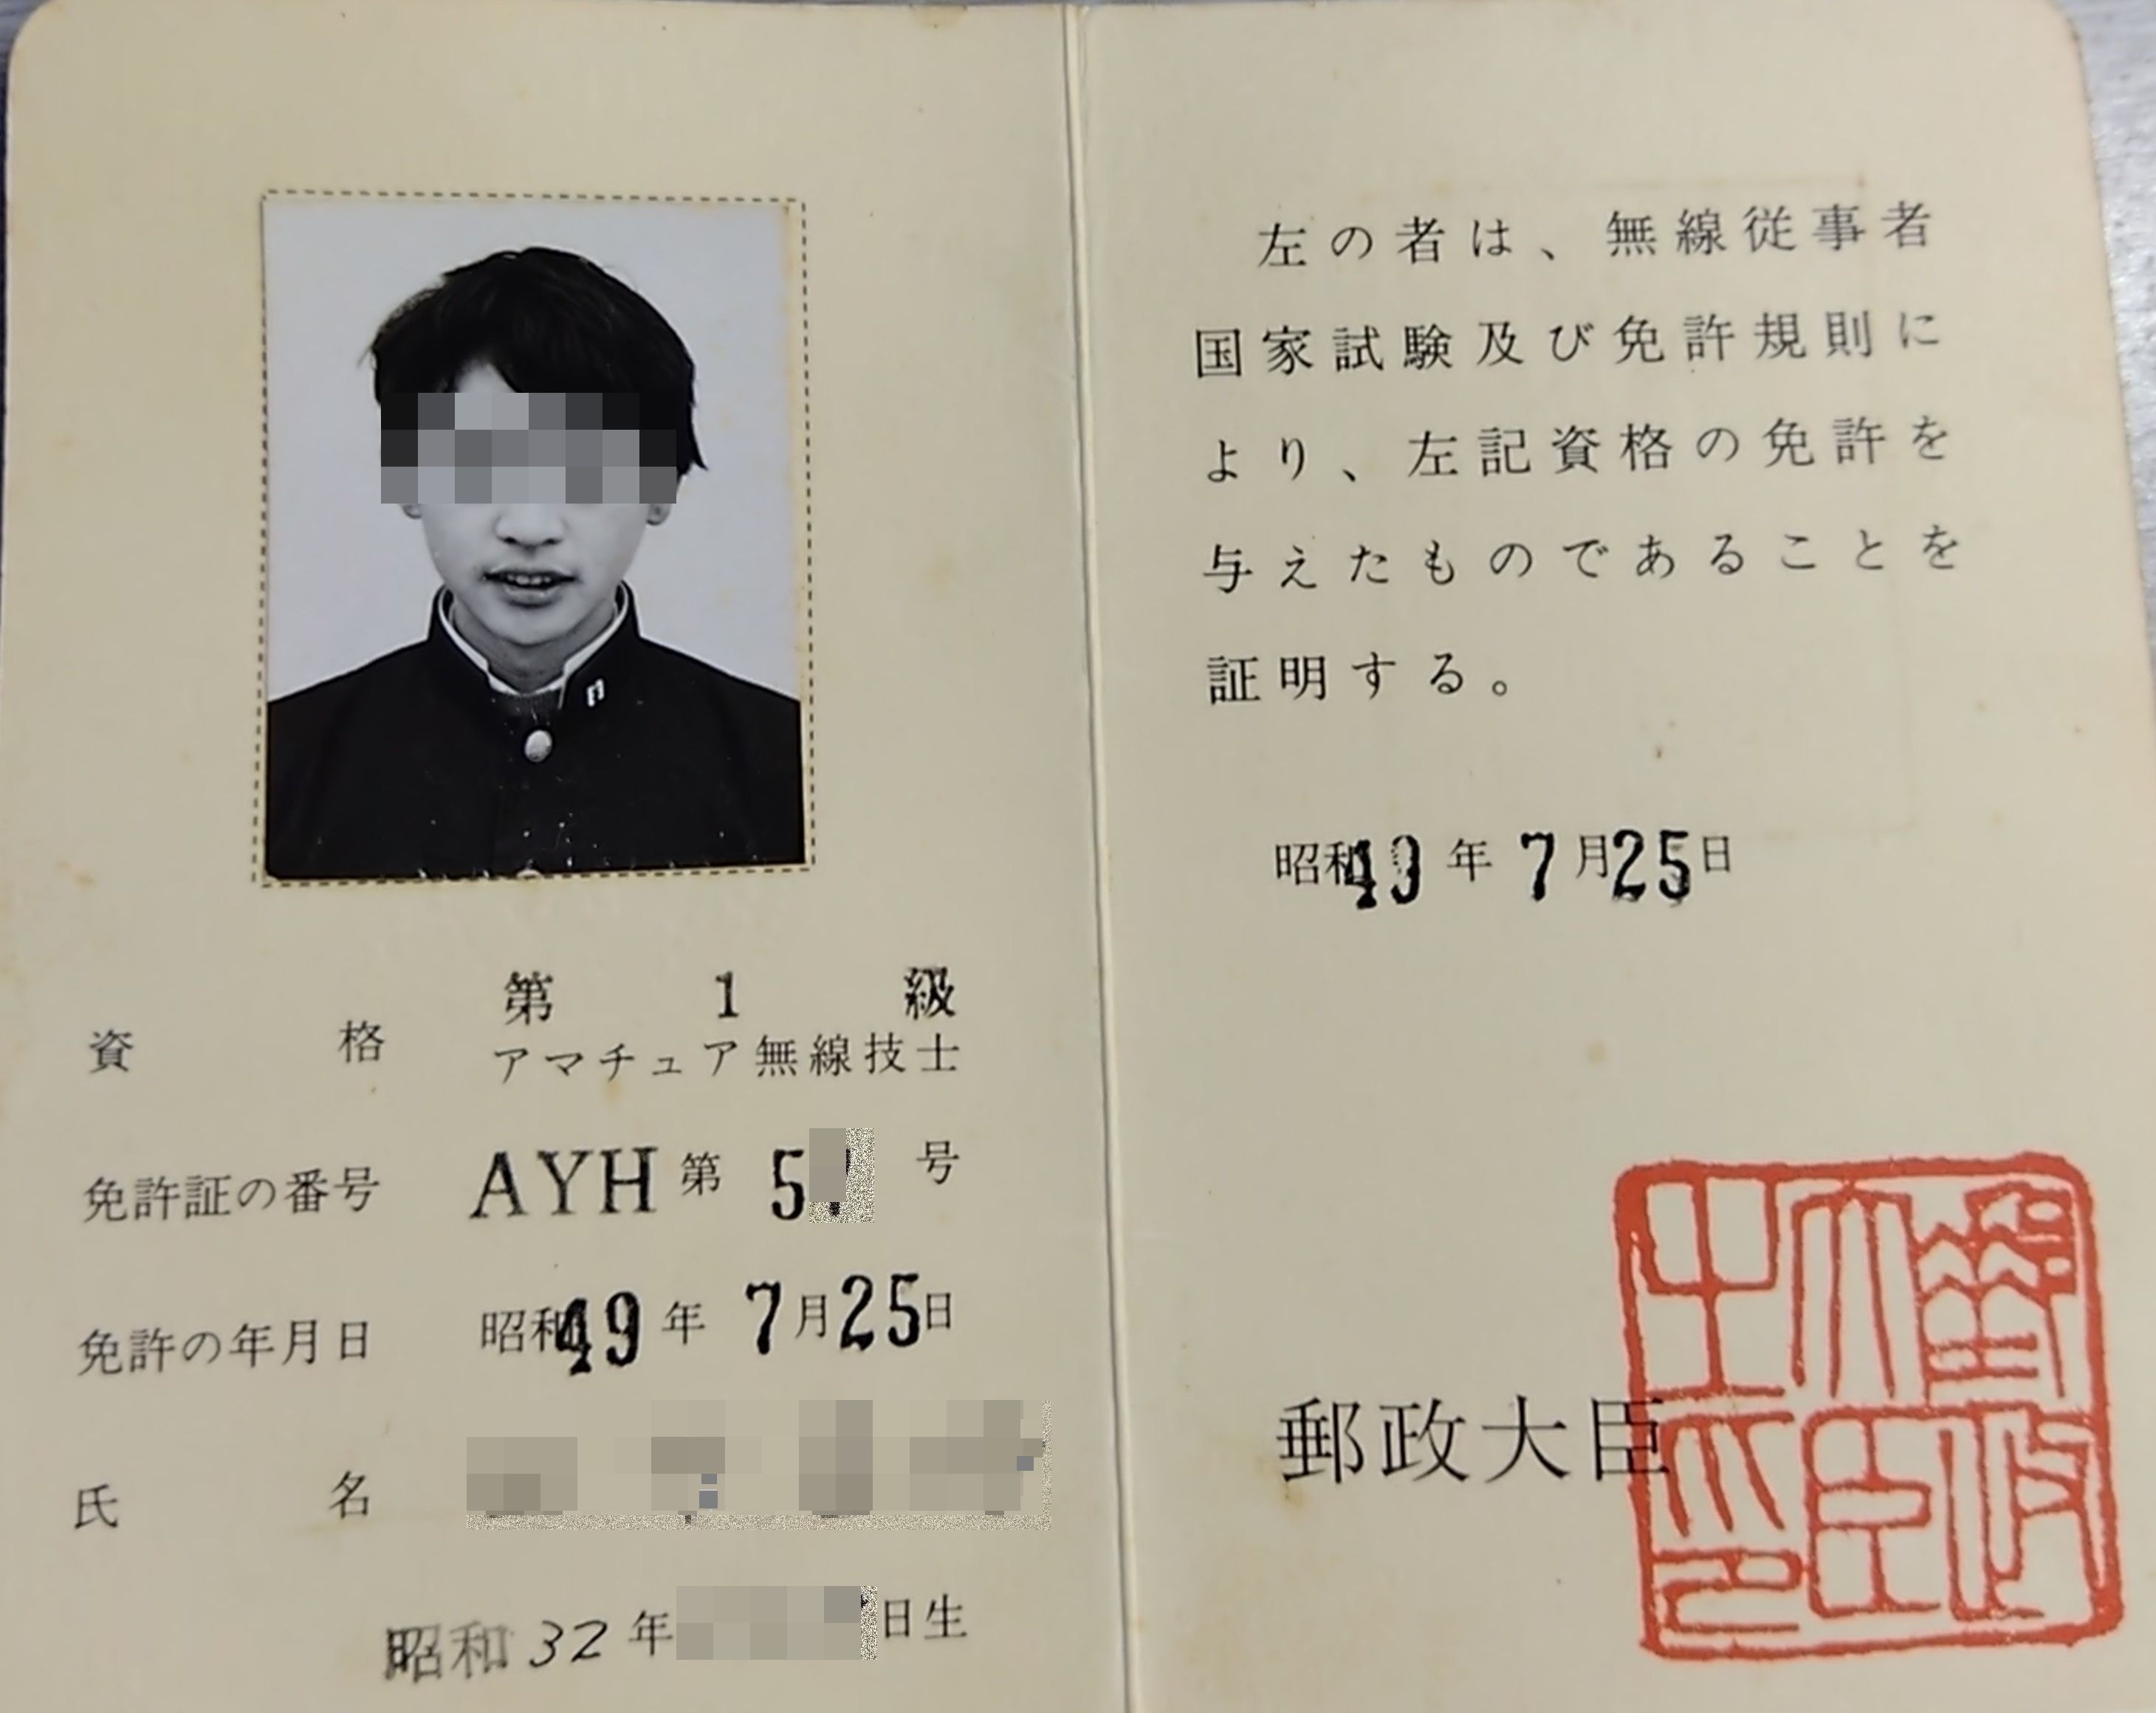 資格 第1級
アマチュア無線技士
免許証の番号 AYH第5 号
免許の年月日 昭和49年7月25日
氏名
昭和32年 日生
左の者は、無線従事者
国家試験及び免許規則に
より、左記資格の免許を
与えたものであることを
証明する。
昭和49年7月25日
郵政大臣
郵政大臣之印